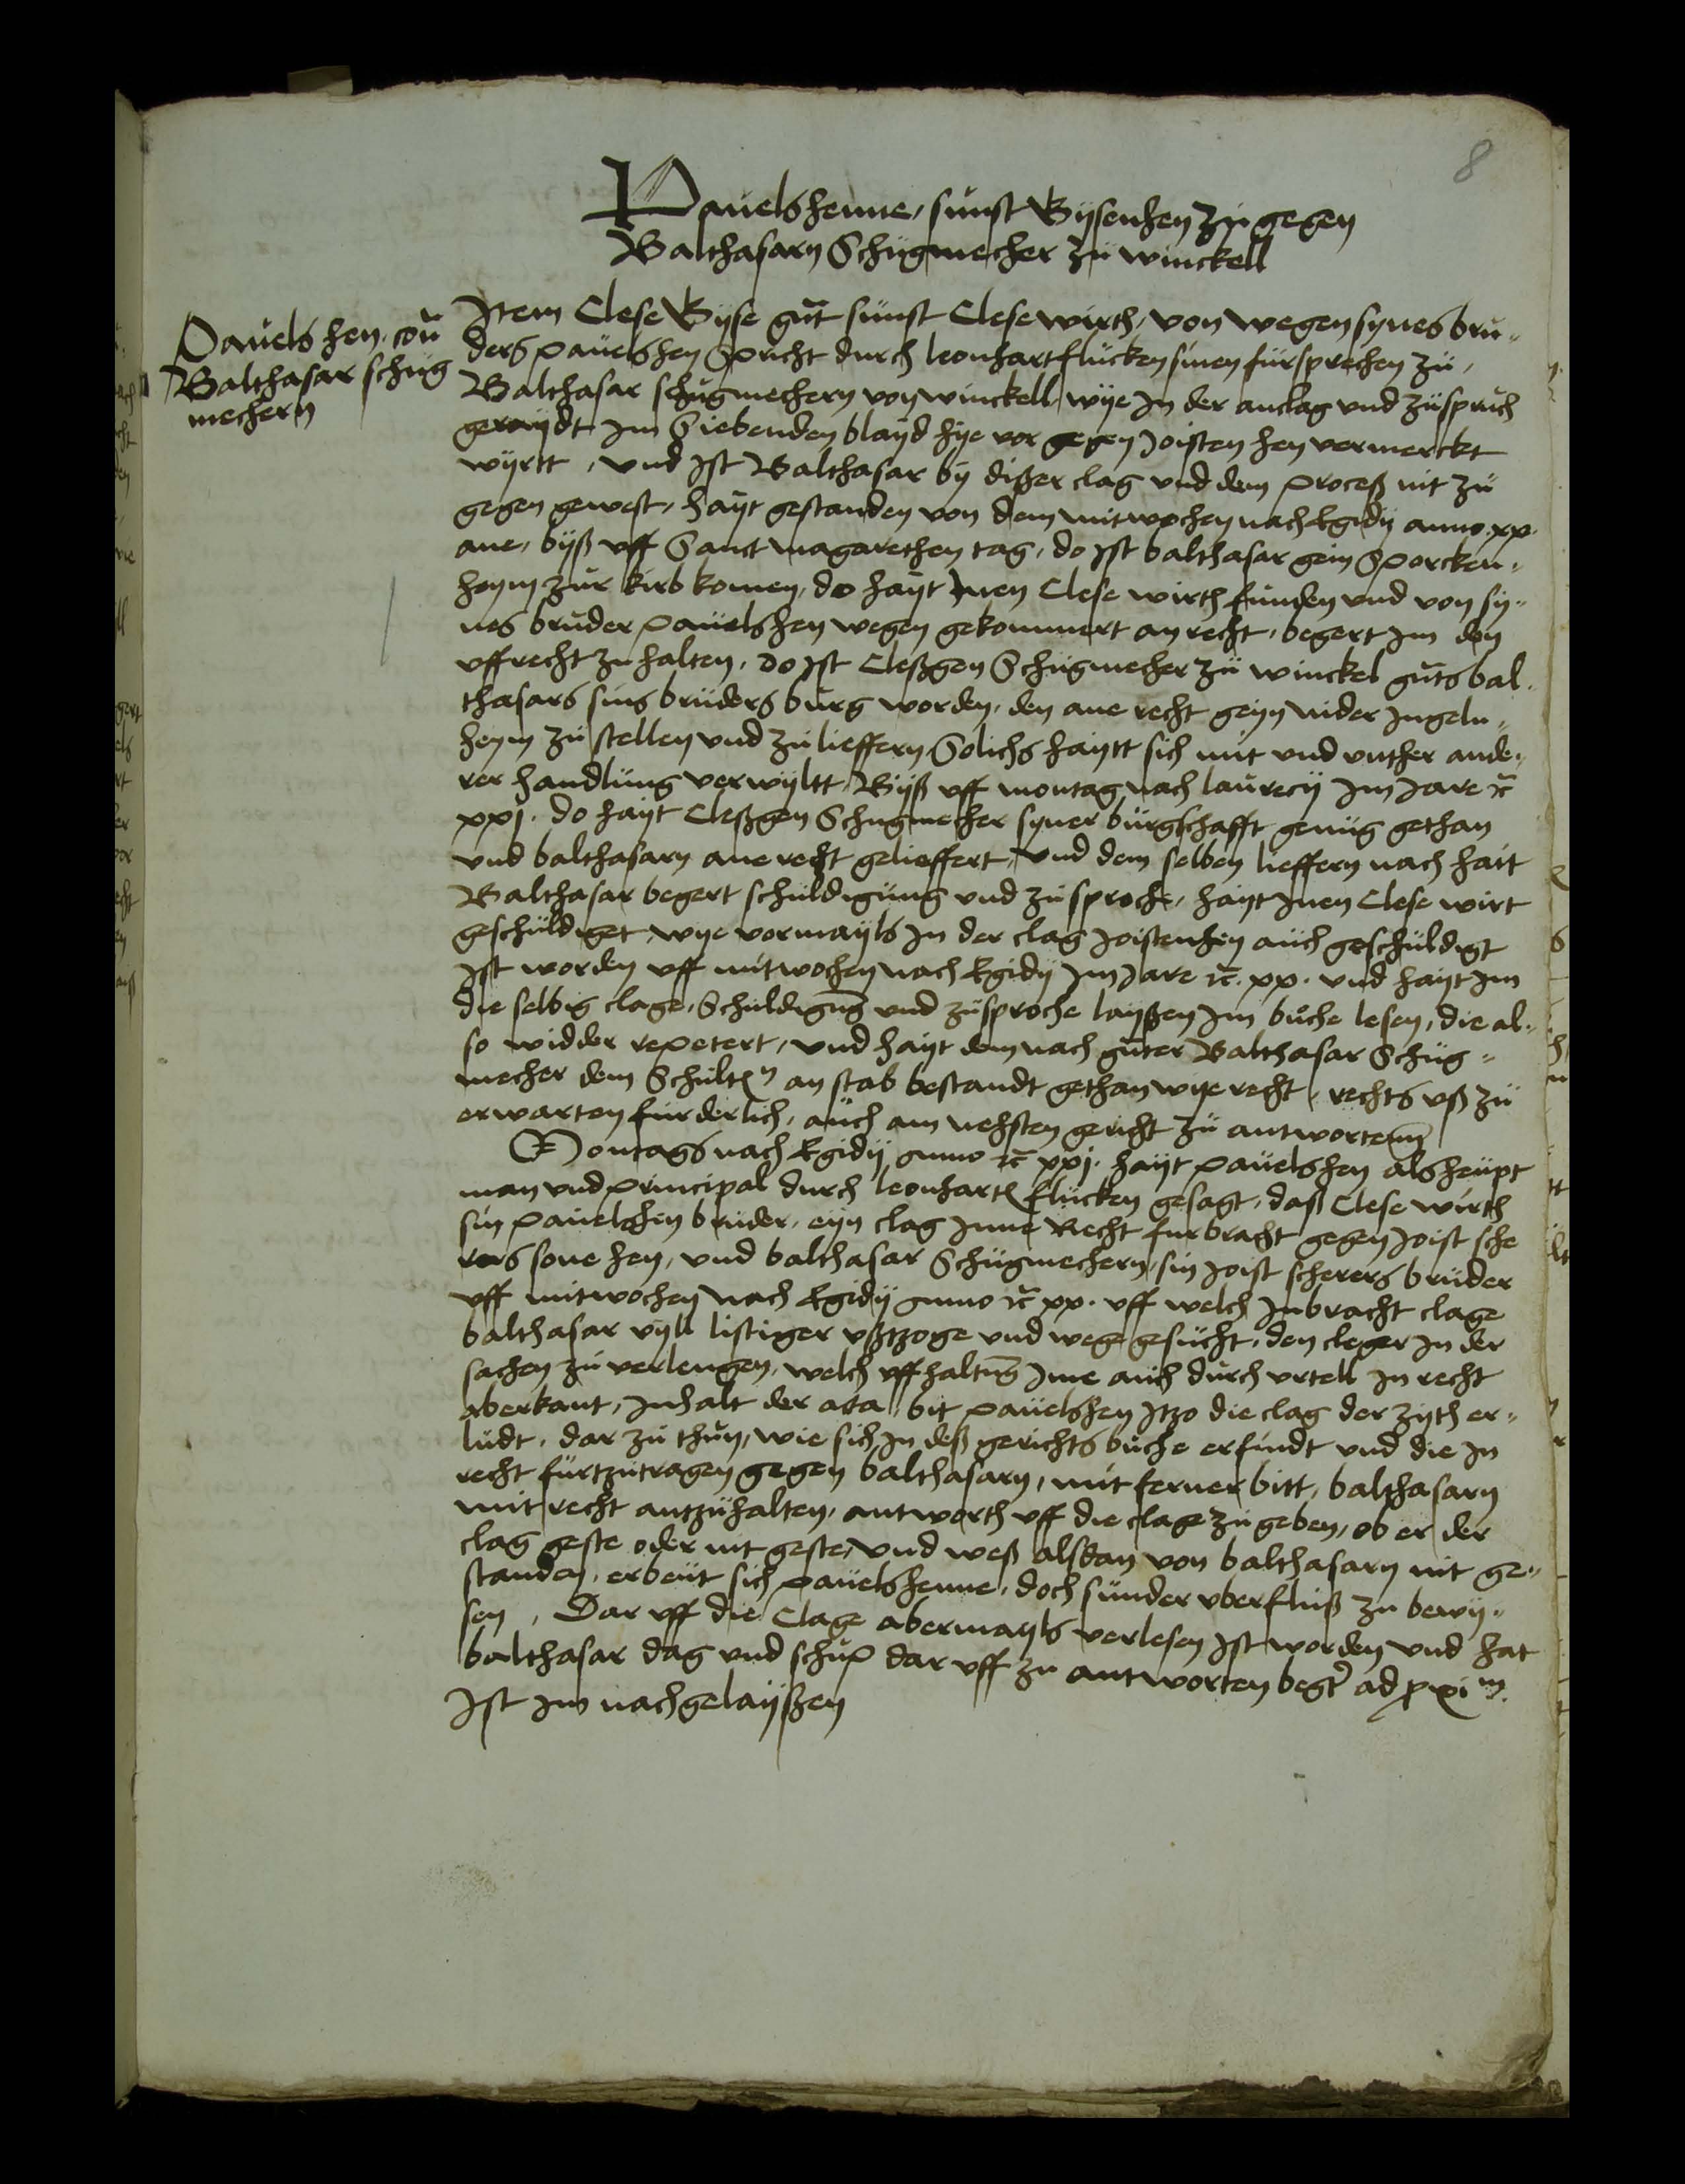 8
Pauelshenne, sunst Bysenhen zu gegen
Balthasarn Schugmecher zu winckell
Pauels hen. con
Balthasar schug
mechern
Item Clese Byse gut sunst Clese wirth, von wegen synes bru„
ders pauelshen Spricht durch leonhart flucken sinen fursprechen zu,
Balthasar schugmechern von winckell, wye In der anclag und zuspruch
geraydt Im Siebenden blayd hye vor gegen Joisten hen vermerckt
wyrtt, und Ist Balthasar by dißer clag und dem proceß nit zu
gegen gewest, hayt gestanden von dem mitwochen nach Egidy anno. xx.
ane, byß uff Sanct magarethen tag, do Ist balthasar gein Sporcken„
heym zur kirb komen, do hayt Inen Clese wirth funden und von sy„
nes bruder pauelshen wegen gekommert an recht, begert Im den
uff recht zu halten, do Ist Cleßgen Schugmecher zu winckel guts bal„
thasars sins bruders burg worden, den ane recht geyn nider Ingeln„
heym zu stellen und zu lieffern, Solichs haytt sich mit und unther ande„
rer handlung verwyltt, Byß uff montag nach laurecy Im Jare ꝛc
xxj. do hayt Cleßgen Schugmecher syner burgschafft genug gethan
und balthasarn ane recht gelieffert, Und dem selben lieffern nach hait
Balthasar begert schuldigung und zusproche, hayt Inen Clese wirt
geschuldiget, wye vormayls In der clag Joistenhen auch geschuldigt
Ist worden uff mitwochen nach Egidy Im Jare ꝛc. xx. und hayt Im
die selbig clage, Schuldigung und zusproche layßen Im buche lesen, die al„
so widder repetert, und hayt dem nach guter Balthasar Schug„
mecher dem Schultsn an stab bestandt gethan wye recht, rechts uß zu
erwarten furderlich, auch am nehsten gericht zu antworten
Montags nach Egidy anno ꝛc xxj. hayt pauelshen als heupt
man und principal durch leonharts flucken gesagt, daß Clese wirth
sin pauelshen bruder, eyn clag Inne Recht furbracht gegen Joist sche
rers sone hen, und balthasar Schugmechern, sin Joist scherers bruder
uff mitwochen nach Egidy anno ꝛc xx. uff welch Inbracht clage
balthasar vyll listiger ußtzoge und wege gesucht, den cleger In der
sachen zu verlengen, welch uffhaltung Ime auch durch urtell In recht
aberkant, Inhalt der acta, bit pauelshen Itzo die clag der zyth er„
ludt, dar zu thun, wie sich In deß gerichts buche erfindt und die In
recht furtzutragen gegen balthasarn, mit ferner bitt, balthasarn
mit recht antzuhalten, antworth uff die clage zu geben, ob er der
clag geste oder nit geste, und weß alsdan von balthasarn nit ge„
standen, erbeut sich pauelshenne, doch sunder uberfluß zu bewy„
sen, Dar uff die Clage abermayls verlesen Ist worden und hat
balthasar dag und schup dar uff zu antworten begert ad proximam
Ist Im nachgelayßen